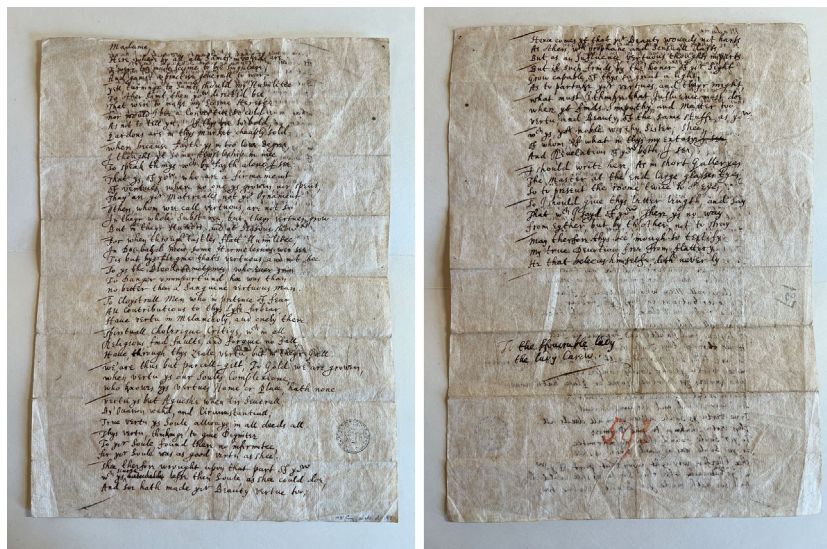 Madame
Here where by all, all Saints invoked are
T'were too much Scisme to be singulare
And gainst a practise generall to war,
yett, turninge to Saints, should my Humilitee
To other Saint then yow directed bee
That were to make my Scisme Heresee
nor would I be a Convertite so cold
As not to tell ytt; If thys be to bold,
Pardons are in thys Market cheaply sold.
where because Fayth ys in too lowe degree
I thought yt some Apostleship in mee
To speak things which by fayth alone I see
That ys, of yow; who are a firmament
Of vertues, where no one ys growen, nor spent,
Thay'are yor Materialls, not yor Ornament
Others, whom wee call vertuous, are not so
In theyr whole Substance, but theyr vertues grow
But in theyr Humors, and at Seasons show
For when through tastles flatt Humilitee
In Doughbakd Men, some Harmelesnes wee see
Tis but hys Flegme that's vertuous, and not hee
So ys the Blood sometymes; who ever ran
To Danger unimportund, hee was than
no better then a Sanguine vertuous Man.
So Cloystrall Men who in pretence of fear,
All Contributions to thys Lyfe forbear
Have vertu in Melancholy, and onely there
Spirituall Cholerique Critiqs, wch in all
Religions find faults, and forgive no fall,
Have, through thys Zeale, vertu, but in theyr Gall
we are thus but parcell-gilt; To Gold we'are growen,
when vertu ys our Soules Complexione
who knowes hys vertues Name, or Place, hath none
vertu ys but Aguishe when tis Severall
By Occasion wak'd, and Circumstantiall;
True vertu ys Soule, allways in all deeds all
Thys vertu, thinkinge to give Dignitee
To yor Soule, found there no infirmitee
for yor Soule was as good vertu as shee.
Shee therfore wrought upon that part of yow
wch ys scarse lesse then Soule, as shee could doe,
And soe hath made yor Beauty vertue too;
Hence comes yt that yor Beauty wounds not harts
As Others, wth prophane and Sensuall darts,
But, as an Influence, vertuous thoughts imparts
But if such frinds, by the honor of yor Sight
Grow capable of thys so great a light,
As to partake yor vertues, and theyr might,
what must I thinke that Influence must doe
where yt finds Simpathy, and Matter too,
vertu, and Beauty, of the same stuffe, as yow:
wch ys, yor noble worthy Sister; shee,
Of whom, if what in thys my extasye
And Revelation of yow both, I see,
I should write here, As in short Galleryes
The Master at the end large glasses tyes,
So to present the roome twice to or eyes,
So I should give thys letter length, and say
That wch I sayd of yow; There ys no way
From eyther, but by th'other, not to stray
May therfore thys be enough to testify
My true Devotion, free from flattery.
He that beleevs himselfe, doth never ly
To the Honorable lady
the lady Carew.
593